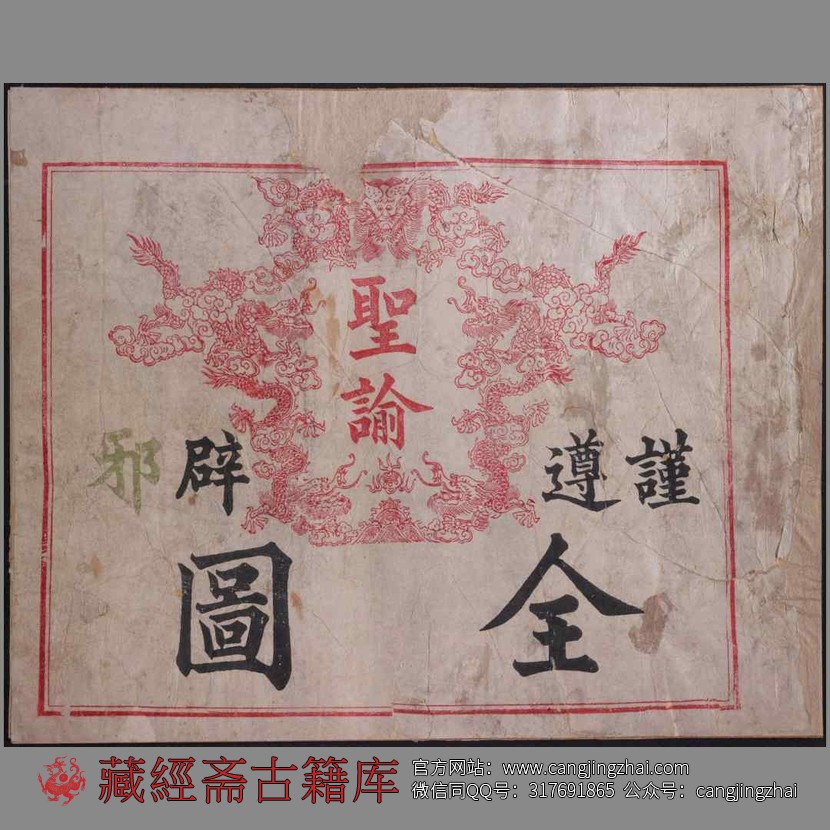 謹遵聖諭辟邪
全圖
藏經斋古籍库
官方网站：www.cangjingzhai.com
微信同QQ号：317691865 公众号：cangjingzhai